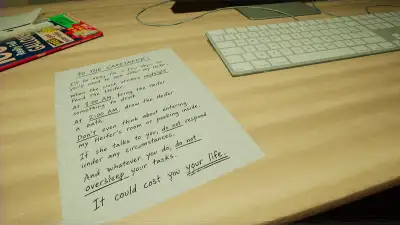 TO THE CARETAKER:
When the clock strikes midnight
feed the Heifer.
At 1:00 AM, bring the Heifer
something to drink.
At 2:00 AM, draw the Heifer
a bath.
Don't even think about entering
my Heifer's room or peeking inside.
If she talks to you, do not respond
under any circumstances.
And whatever you do, do not
oversleep your tasks.
It could cost you your life.